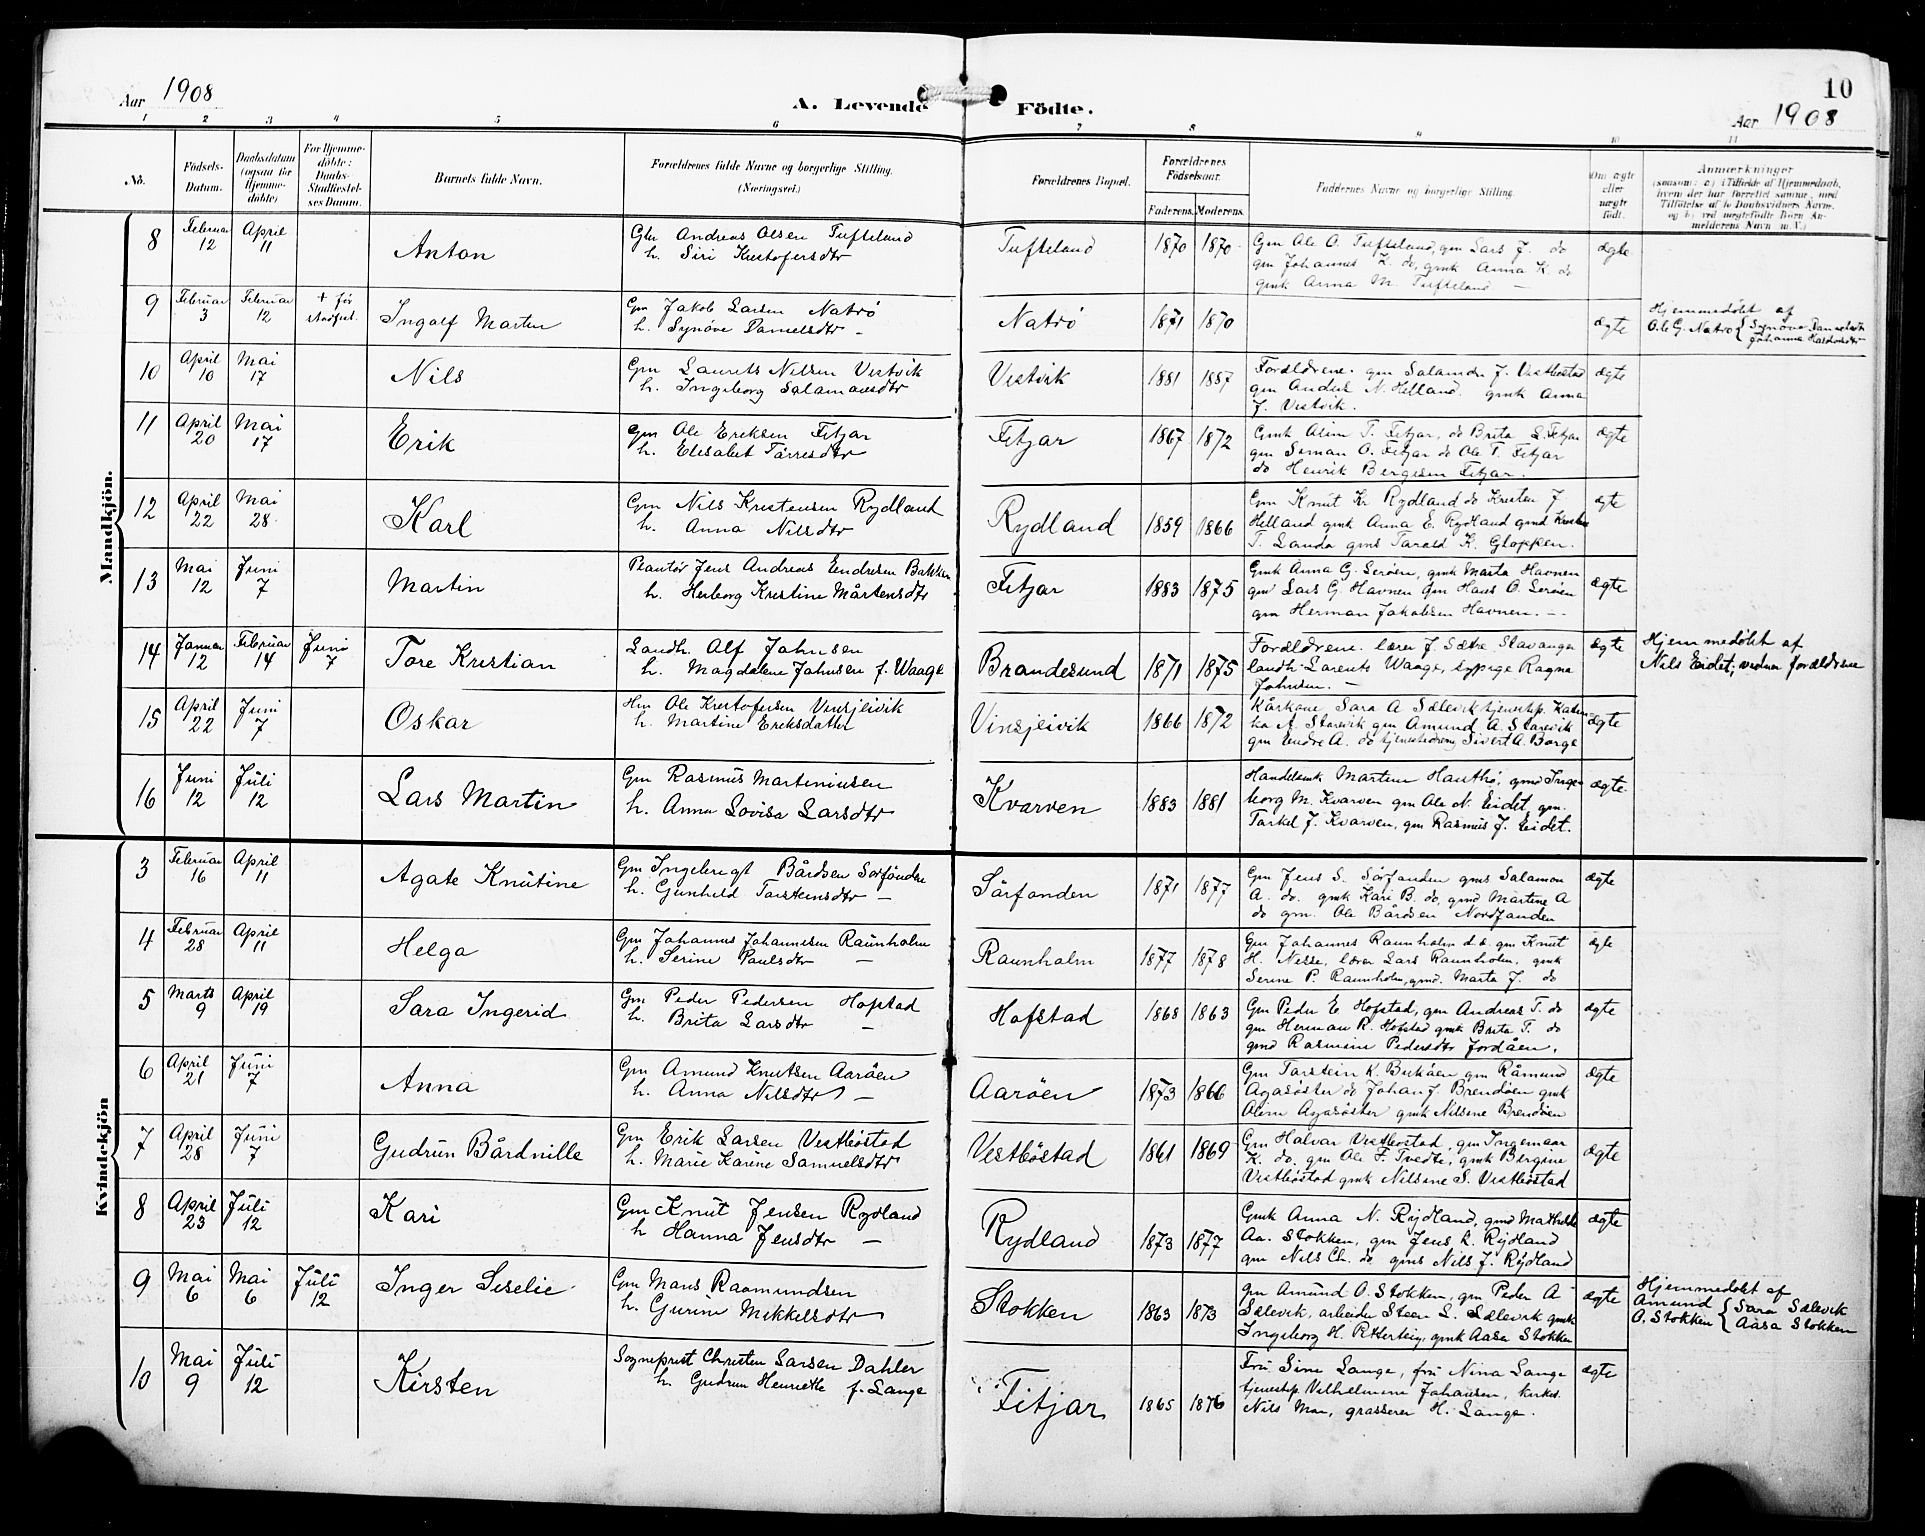 Aar 1908
A. Levende Födte.
10
Aar 1908
1 2 3 4 5 6 7 8 9 10 11
No.
Födsels-
Datum.
Daabsdatum
(ogsaa for
Hjemme-
döbte)
For Hjemme-
döbte:
Daabs-
Stadfæstel-
ses Datum.
Barnets fulde Navn.
Forældrenes fulde Navne og borgerlige Stilling.
(Næringsvei.)
Forældrenes Bopæl.
Forældrenes
Födselsaar.
Faderens. Moderens.
Faddernes Navne og borgerlige Stilling.
Om ægte
eller
uægte
födt.
Anmærkninger
(saasom: a) i Tilfælde af Hjemmedaab,
hvem der har forrettet samme, med
Tilföielse af to Daabsvidners Navne,
og b) ved uægtefödte Börn An-
melderens Navn m. V.)
Mandkjön.
8 Februar 12 April 11 Anton
Gbr Andreas Olsen Tufteland
h. Siri Kristofersdtr
Tufteland 1870 1870
Gm Ole O. Tufteland, gm Lars J. do
gm Johannes K. do, gmk Anna K. do
gmk Anna M. Tufteland —
ægte
9 Februar 3 Februar 12 + før stadfest. Ingolf Martin
Gm Jakob Larsen Natrö
h. Synöve Danielsdtr —
Natrö 1871 1870 ægte
Hjemmedøbt af
Ole G. Natrö { Synöve Danielsdtr
Johanna
10 April 10 Mai 17 Nils
Gm Laurits Nilsen Vestvik
h. Ingeborg Salamonsdtr
Vestvik 1881 1887
Forældrene. gm Salamon J. Vestbøstad
gm Anders N. Helland. gmk Anna
J. Vestvik.
ægte
11 April 20 Mai 17 Erik
Gm Ole Eriksen Fitjar
h. Elisabet Tørresdtr
Fitjar 1867 1872
Gmk Oline T. Fitjar, do Brita L. Fitjar
gm Simon O. Fitjar do Ole T. Fitjar
do Henrik Bergesen Fitjar.
ægte
12 April 22 Mai 28 Karl
Gm Nils Kristensen Rydland
h. Anna Nilsdtr
Rydland 1859 1866
Gm Knut K. Rydland do Kristen J.
Helland gmk Anna E. Rydland gmd
T. Landa gms Tarald K. Gloppen.
ægte
13 Mai 12 Juni 7 Martin
Jens Andreas Endresen Bakken
h. Herborg Kristine Mårtensdtr
Fitjar 1883 1875
Gmk Anna G. Serøen, gmk Marta Havnen
gm Lars G. Havnen gm Hans O. Serøen
gm Herman Jakobsen Havnen. —
ægte
14 Januar 12 Februar 14 Juni 7 Tore Kristian
Landh. Alf Johnsen
h. Magdalene Johnsen f. Waage
Brandesund 1871 1875
Forældrene. lærer J. Sætre Stavanger
landh. Larents Waage, Ragna
Johnsen. —
ægte
Hjemmedøbt af
Nils Eidet, vidner forældrene
15 April 22 Juni 7 Oskar
Hm Ole Kristofersen Vinsjlivik
h. Martine Eriksdatter
Vinsjlivik 1866 1872
Kårkone Sara A Sælevik tjenestep. Katrin-
ka A. Storevik gm Amund A. Storevik
gm Endre A. do tjenestedreng Sivert A. Borge
ægte
16 Juni 12 Juli 12 Lars Martin
Gm Rasmus Martiniusen
h. Anna Lovisa Larsdtr
Kvarven 1883 1881
Handelsmk Martine Hanthö, gmd Inge-
borg M. Kvarven gm Ole N. Eidet gm.
Torkel J. Kvarven, gm Rasmus J. Eidet.
ægte
Kvindekjön
3 Februar 16 April 11 Agate Knutine
Gm Ingebrigt Bårdsen Sørfonden
h. Gunhild Torsteinsdtr —
Sørfonden 1871 1877
Gm Jens S. Sørfonden gms Salamon
A. do. gmk Kari B. do, gmd Martine A
do gm. Ole Bårdsen Nordfonden
ægte
4 Februar 28 April 11 Helga
Gm Johannes Johannesen Raunholm
h. Serine Paulsdtr —
Raunholm 1877 1878
Gm Johannes Raunholm d.e. gm Knut
H. Nelse, lærer Lars Raunholm, gmk
Serine P. Raunholm, gmd. Marta J. do
ægte
5 Marts 9 April 19 Sara Ingerid
Gm Peder Pedersen Hopstad
h. Brita Larsdtr —
Hofstad 1868 1863
Gm Peder E Hofstad, gm Andreas T. do
gm Herman R. Hofstad gmk Brita T. do
gmd Rasmine Pedersdtr Jordåen.
ægte
6 April 21 Juni 7 Anna
Gm Amund Knutsen Aarøen
h. Anna Nilsdtr —
Aarøen 1873 1866
Gm Torstein K. Bukøen gm Råmund
Agasøster do Johan J. Brendøen gmk
Oline Agasøster gmk Nilsine Brendøen
ægte
7 April 28 Juni 7 Gudrun Bårdnille
Gm Erik Larsen Vestbøstad
h. Marie Karine Samuelsdtr
Vestbøstad 1861 1869
Gm Halvar Vestbøstad, gm Ingemaar
K. do, gm Ole F. Tvedte, gmk Bergine
Vestbøstad gmk Nilsine S. Vestbøstad
ægte
8 April 23 Juli 12 Kari
Gm Knut Jensen Rydland
h Hanna Jensdtr —
Rydland 1873 1877
Gmk Anna N. Rydland, gmd Mathilde
Aa. Stokken, gm Jens L. Rydland
gm Nils Ch. do, gms Nils J. Rydland
ægte
9 Mai 6 Mai 6 Juli 12 Inger Siselie
Gm Mons Raamundsen
h. Gurine Mikkelsdtr
Stokken 1863 1873
gm Amund O. Stokken, gm Peder A
Sælevik, arbeider Steen L. Sælevik gmk
Ingeborg H. gmk Aasa Stokken
ægte
Hjemmedøbt af
Amund
O. Stokken { Sara Sælevik
Aasa Stokken
10 Mai 9 Juli 12 Kirsten
Sogneprest Christen Larsen Dahler
h. Gudrun Henriette f. Lange
Fitjar 1865 1876
Fru Sine Lange, fru Nina Lange
tjenestep. Vilhelmine Johansen, kirkes.
Nils Moe, grosserer H. Lange.
ægte